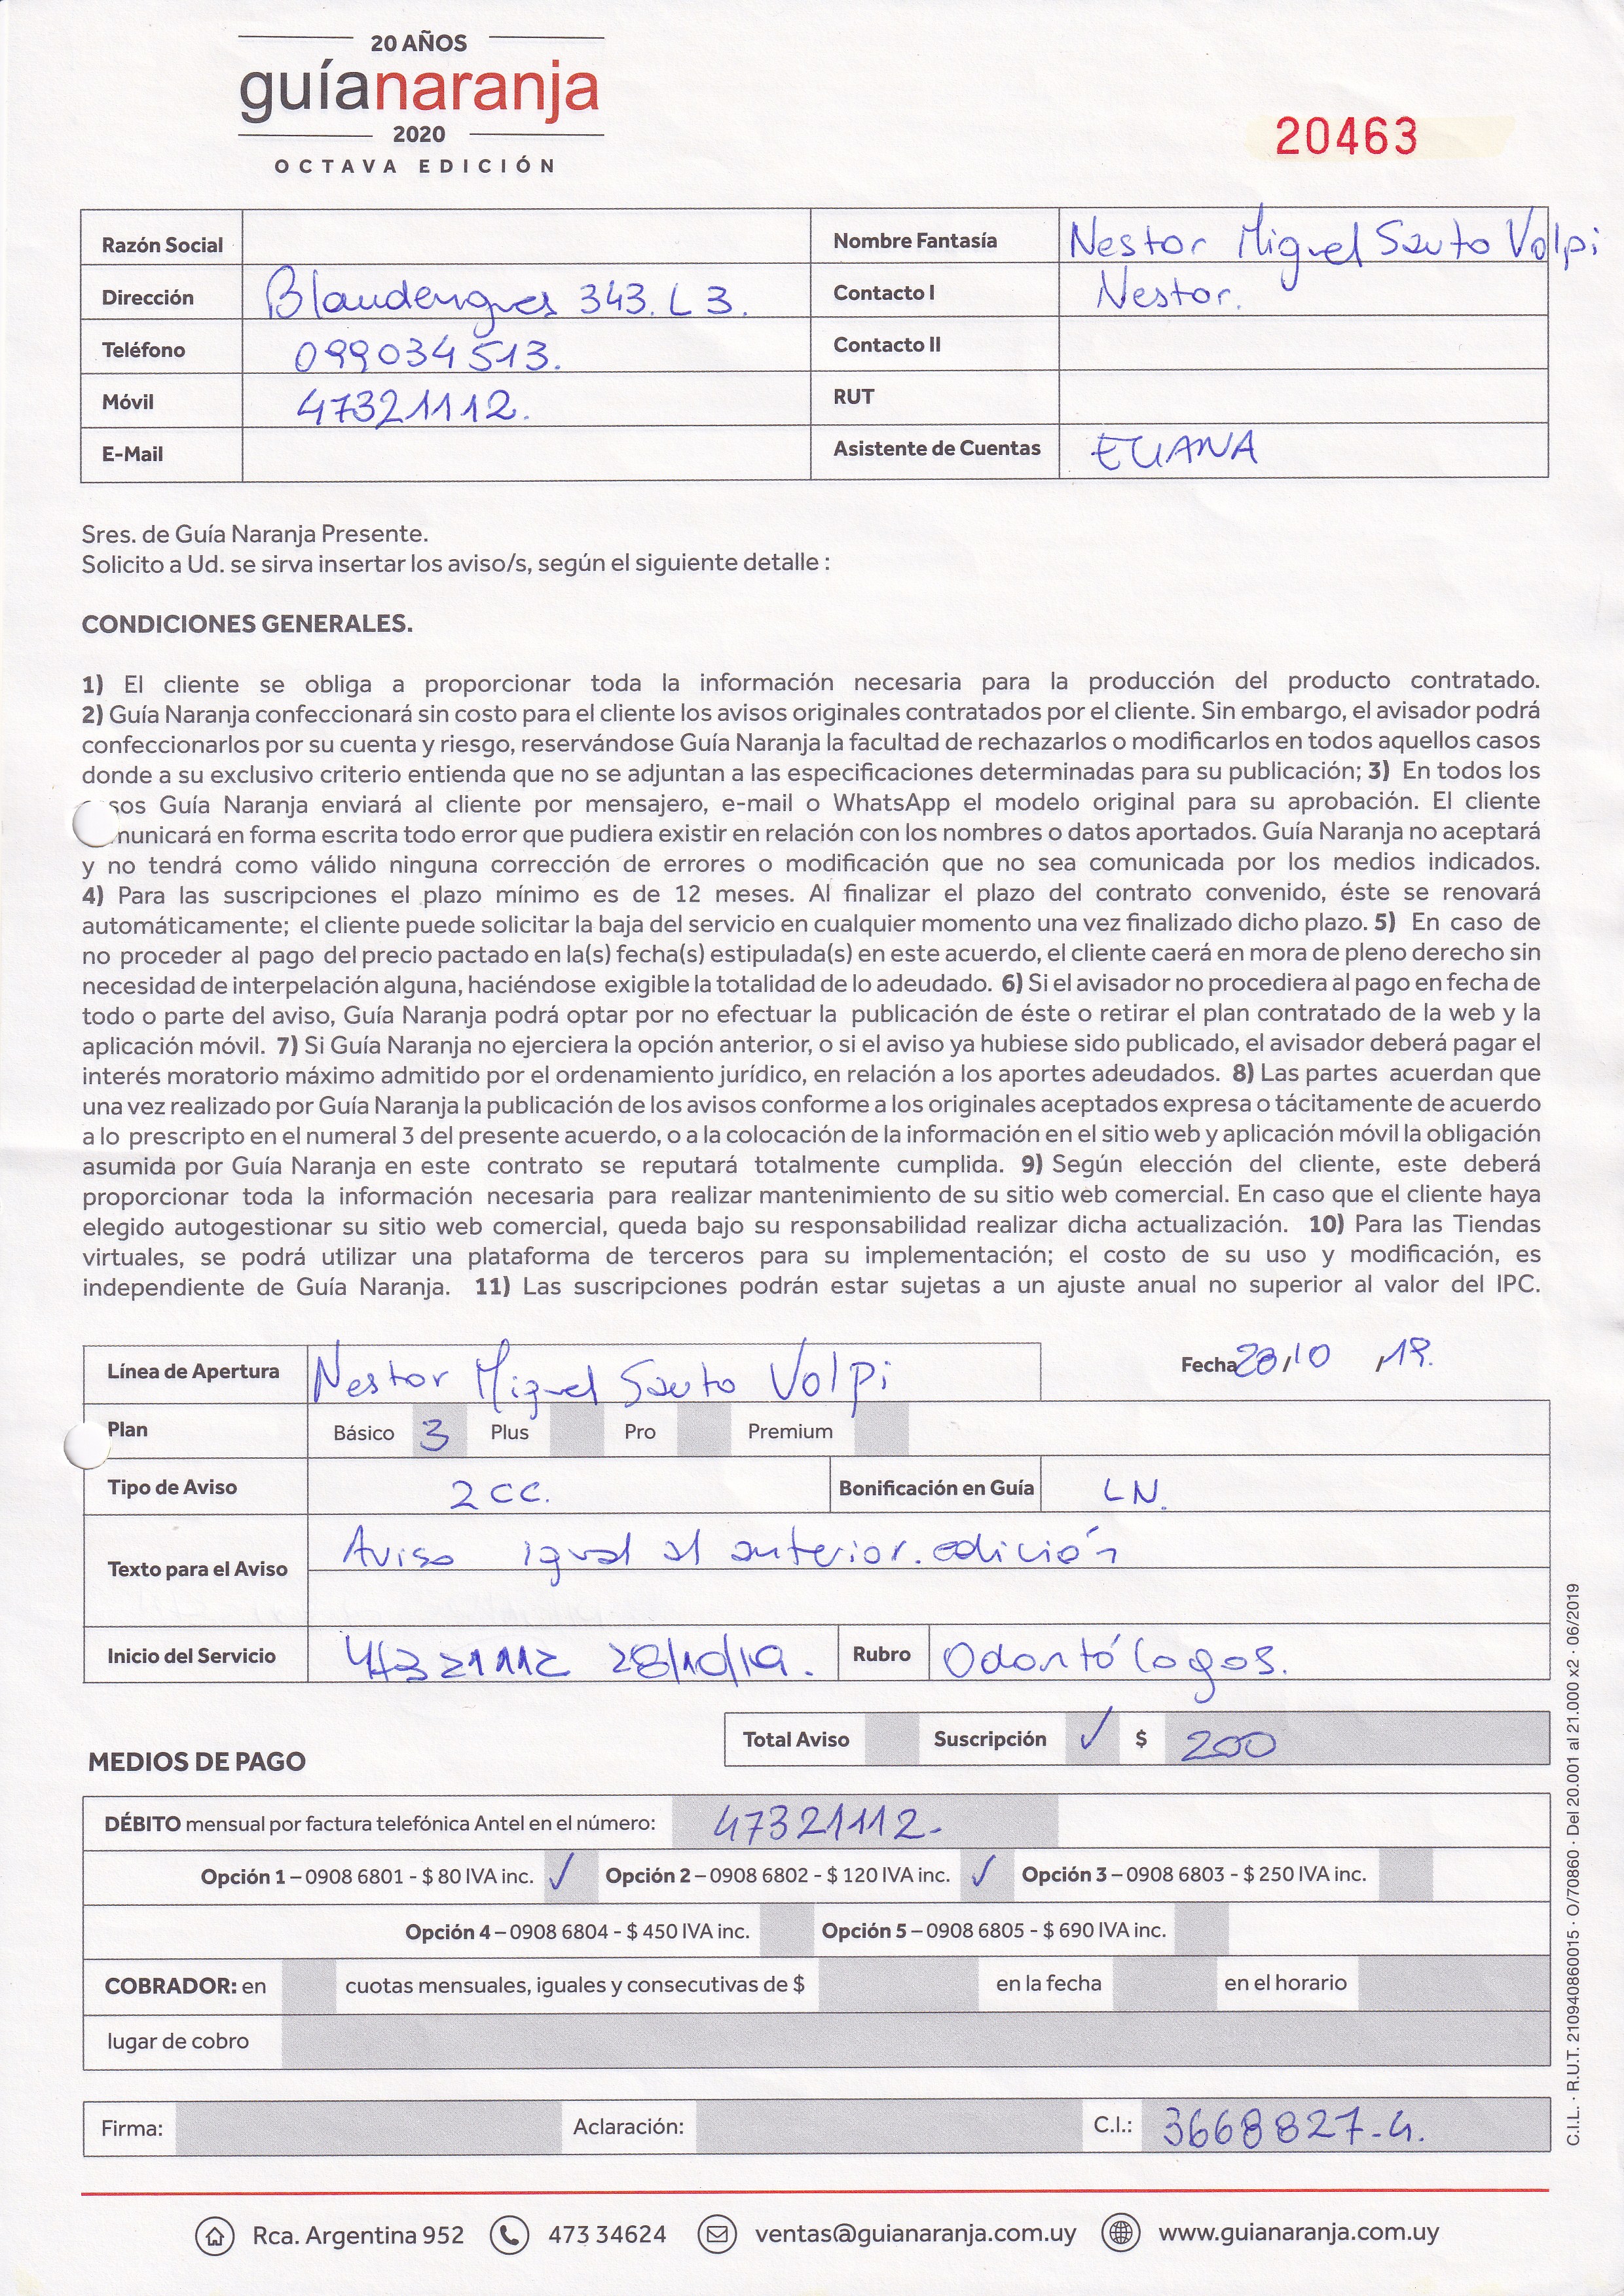 20 AÑOS
guíanaranja
2020
OCTAVA EDICIÓN
20463
Razón Social
Nombre Fantasía Nestor Miguel Souto Volpi
Dirección Blandengues 343. L 3.
Contacto I Nestor.
Teléfono 099034513.
Contacto II
Móvil 47321112.
RUT
E-Mail
Asistente de Cuentas ELIANA
Sres. de Guía Naranja Presente.
Solicito a Ud. se sirva insertar los aviso/s, según el siguiente detalle :
CONDICIONES GENERALES.
1) El cliente se obliga a proporcionar toda la información necesaria para la producción del producto contratado.
2) Guía Naranja confeccionará sin costo para el cliente los avisos originales contratados por el cliente. Sin embargo, el avisador podrá
confeccionarlos por su cuenta y riesgo, reservándose Guía Naranja la facultad de rechazarlos o modificarlos en todos aquellos casos
donde a su exclusivo criterio entienda que no se adjuntan a las especificaciones determinadas para su publicación; 3) En todos los
sos Guía Naranja enviará al cliente por mensajero, e-mail o WhatsApp el modelo original para su aprobación. El cliente
municará en forma escrita todo error que pudiera existir en relación con los nombres o datos aportados. Guía Naranja no aceptará
y no tendrá como válido ninguna corrección de errores o modificación que no sea comunicada por los medios indicados.
4) Para las suscripciones el plazo mínimo es de 12 meses. Al finalizar el plazo del contrato convenido, éste se renovará
automáticamente; el cliente puede solicitar la baja del servicio en cualquier momento una vez finalizado dicho plazo. 5) En caso de
no proceder al pago del precio pactado en la(s) fecha(s) estipulada(s) en este acuerdo, el cliente caerá en mora de pleno derecho sin
necesidad de interpelación alguna, haciéndose exigible la totalidad de lo adeudado. 6) Si el avisador no procediera al pago en fecha de
todo o parte del aviso, Guía Naranja podrá optar por no efectuar la publicación de éste o retirar el plan contratado de la web y la
aplicación móvil. 7) Si Guía Naranja no ejerciera la opción anterior, o si el aviso ya hubiese sido publicado, el avisador deberá pagar el
interés moratorio máximo admitido por el ordenamiento jurídico, en relación a los aportes adeudados. 8) Las partes acuerdan que
una vez realizado por Guía Naranja la publicación de los avisos conforme a los originales aceptados expresa o tácitamente de acuerdo
a lo prescripto en el numeral 3 del presente acuerdo, o a la colocación de la información en el sitio web y aplicación móvil la obligación
asumida por Guía Naranja en este contrato se reputará totalmente cumplida. 9) Según elección del cliente, este deberá
proporcionar toda la información necesaria para realizar mantenimiento de su sitio web comercial. En caso que el cliente haya
elegido autogestionar su sitio web comercial, queda bajo su responsabilidad realizar dicha actualización. 10) Para las Tiendas
virtuales, se podrá utilizar una plataforma de terceros para su implementación; el costo de su uso y modificación, es
independiente de Guía Naranja. 11) Las suscripciones podrán estar sujetas a un ajuste anual no superior al valor del IPC.
Línea de Apertura Nestor Miguel Souto Volpi
Fecha 28/10 /19.
Plan Básico 3 Plus Pro Premium
Tipo de Aviso 2 CC. Bonificación en Guía LN.
Texto para el Aviso Aviso igual al anterior. edición
Inicio del Servicio 47321112 28/10/19. Rubro Odontólogos.
Total Aviso Suscripción ✓ $ 200
MEDIOS DE PAGO
DÉBITO mensual por factura telefónica Antel en el número: 47321112-
Opción 1 – 0908 6801 - $ 80 IVA inc. ✓ Opción 2 – 0908 6802 - $ 120 IVA inc. ✓ Opción 3 – 0908 6803 - $ 250 IVA inc.
Opción 4 – 0908 6804 - $ 450 IVA inc. Opción 5 – 0908 6805 - $ 690 IVA inc.
COBRADOR: en cuotas mensuales, iguales y consecutivas de $ en la fecha en el horario
lugar de cobro
Firma: Aclaración: C.I.: 3668827-4.
Rca. Argentina 952 473 34624 ventas@guianaranja.com.uy www.guianaranja.com.uy
C.I.L. · R.U.T. 210940860015 · O/70860 · Del 20.001 al 21.000 x2 · 06/2019